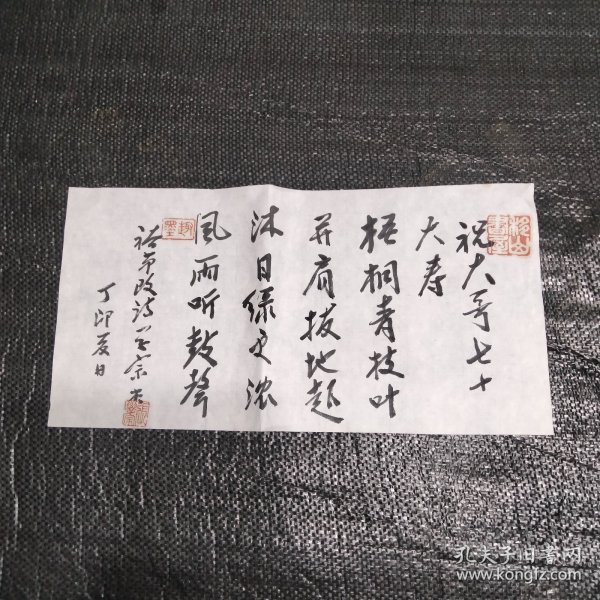 祝大哥七十
大寿
梧桐青枝叶
并肩拔地起
沐日绿更浓
风雨听鼓声
丁卯夏日
孔夫子旧书网
www.kongfz.com